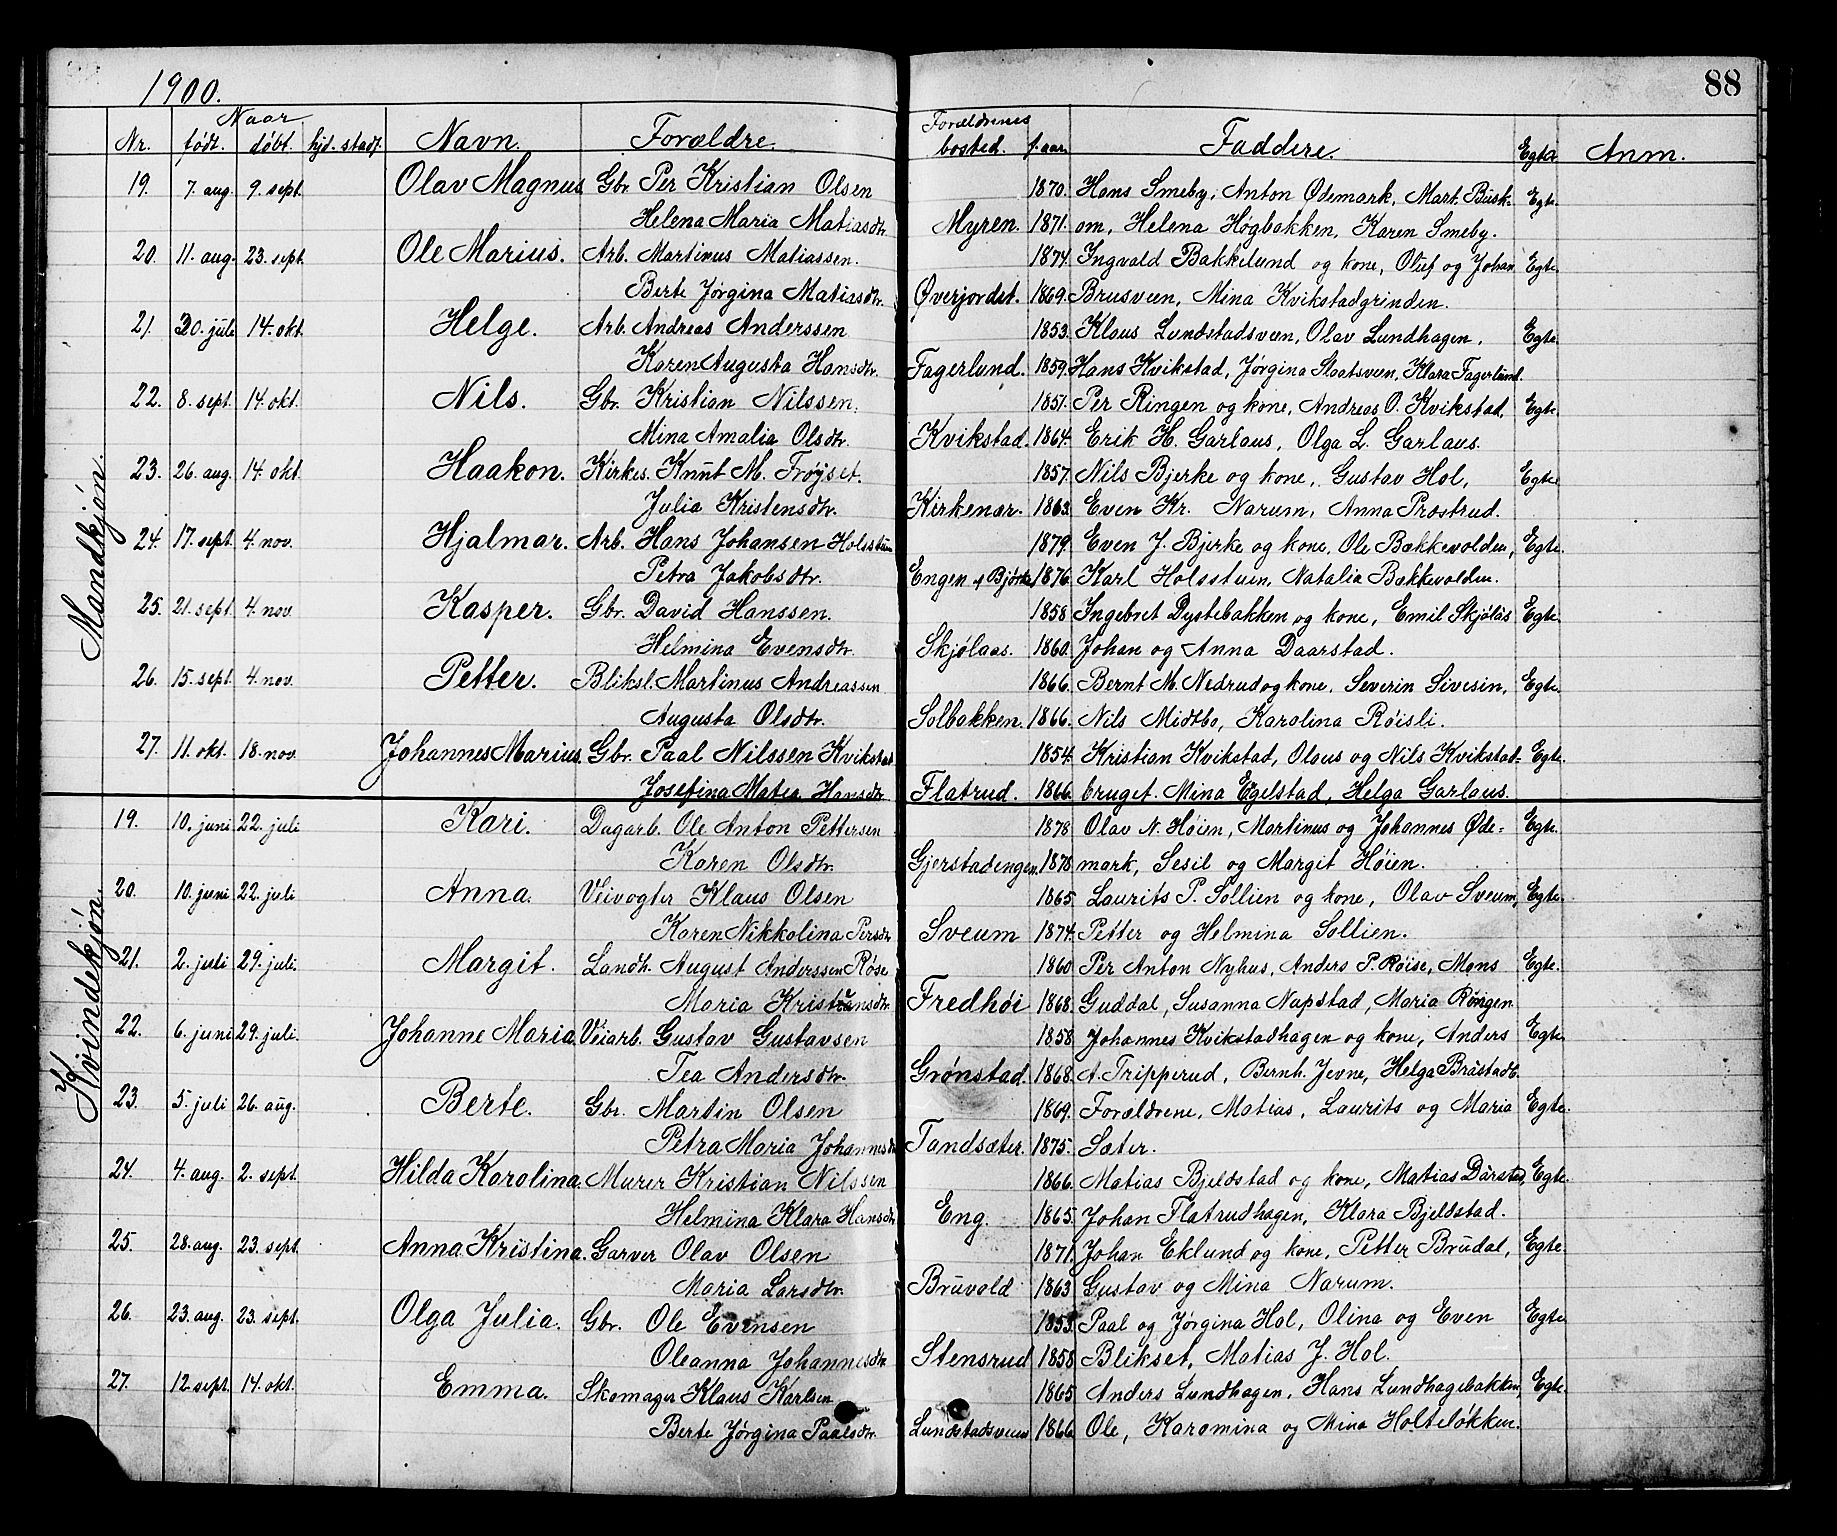 1900.
88
Naar
Forældrenes
Nr. født. døbt. hjd. stadf. Navn. Forældre. bosted. f. aar. Faddere. Egta Anm.
Mandkjøn.
19. 7. aug. 9. sept. Olav Magnus Gbr. Per Kristian Olsen 1870. Hans Smeby, Anton Ødemark, Mart. Busk- Egte.
Helena Maria Matiasdtr. Myren. 1871. om, Helena Høgbakken, Karen Smeby.
20. 11. aug. 23. sept. Ole Marius. Arb. Martinus Matiassen. 1874. Ingvald Bakkelund og kone, Oluf og Johan Egte.
Berte Jørgina Matiasdtr. Øverjordet. 1869. Brusveen, Mina Kvikstadgrinden.
21. 30. juli 14. okt. Helge. Arb. Andreas Anderssen 1853. Klaus Lundstadsveen, Olav Lundhagen, Egte.
Karen Augusta Hansdtr. Fagerlund. 1859. Hans Kvikstad, Jørgina Slaatsveen, Klara Fagerlund.
22. 8. sept. 14. okt. Nils. Gbr. Kristian Nilssen. 1851. Per Ringen og kone, Andreas O. Kvikstad, Egte.
Mina Amalia Olsdtr. Kvikstad. 1864. Erik H. Garlaus, Olga L. Garlaus.
23. 26. aug. 14. okt. Haakon. Kirkes. Knut M. Frøjset. 1857. Nils Bjerke og kone, Gustav Hol, Egte.
Julia Kristensdtr. Kirkenær. 1863. Even Kr. Narum, Anna Præstrud.
24. 17. sept. 4. nov. Hjalmar. Arb. Hans Johansen Holsstuen 1879. Even J. Bjerke og kone, Ole Bækkevolden, Egte.
Petra Jakobsdtr. Engen 1876. Karl Holsstuen, Natalia Bækkevolden.
25. 21. sept. 4. nov. Kasper. Gbr. David Hanssen. 1858 Ingebret Dystebakken og kone, Emil Skjølås Egte.
Helmina Evensdtr. Skjølaas. 1860. Johan og Anna Daarstad.
26. 15. sept. 4. nov. Petter. Bliksl. Martinus Andreassen 1866. Bernt M. Nedrud og kone, Severin Sivesin, Egte.
Augusta Olsdtr. Solbakken. 1866. Nils Midtbo, Karolina Røisli.
27. 11. okt. 18. nov. Johannes Marius. Gbr. Paal Nilssen Kvikstad 1854. Kristian Kvikstad, Olaus og Nils Kvikstad- Egte.
Josefina Matea Hansdtr. Flatrud. 1866. bruget. Mina Egelstad, Helga Garlaus.
Kvindekjøn.
19. 10. juni 22. juli Kari. Dagarb. Ole Anton Pettersen 1878 Olav N. Høien, Martinus og Johannes Øde= Egte.
Karen Olsdtr. Gjerstadengen. 1878. mark, Sesil og Margit Høien.
20. 10. juni 22. juli Anna. Veivogter Klaus Olsen 1865 Laurits P. Sollien og kone, Olav Sveum, Egte.
Karen Nikkolina Persdtr. Sveum 1874. Petter og Helmina Sollien.
21. 2. juli 29. juli. Margit. Landh. August Anderssen Røse 1860 Per Anton Nyhus, Anders P. Røise, Mons Egte.
Maria Kristiansdtr. Fredhøi 1868. Guddal, Susanna Nupstad, Maria Røngen
22. 6. juni 29. juli. Johanne Maria Veiarb. Gustav Gustavsen 1858 Johannes Kvikstadhagen og kone, Anders Egte.
Tea Andersdtr. Grønstad. 1868. A. Tripperud, Bernh. Jevne, Helga Bråstadb.
23. 5. juli 26. aug. Berte. Gbr. Martin Olsen 1869. Forældrene, Matias, Laurits og Maria Egte.
Petra Maria Johannesdtr. Tandsæter. 1875. Sæter.
24. 4. aug. 2. sept. Hilda Karolina. Murer Kristian Nilssen 1866. Matias Bjeldstad og kone, Matias Dårstad, Egte.
Helmina Klara Hansdtr. Eng. 1865. Johan Flatrudhagen, Klara Bjeldstad.
25. 28. aug. 23. sept. Anna Kristina. Garver Olav Olsen 1871. Johan Eklund og kone, Petter Brudal, Egte.
Maria Larsdtr. Bruvold 1863 Gustav og Mina Narum.
26. 23. aug. 23. sept. Olga Julia. Gbr. Ole Evensen 1853. Paal og Jørgina Hol, Olina og Even Egte.
Oleanna Johannesdtr. Stensrud 1858 Blikset, Matias J. Hol.
27. 12. sept. 14. okt. Emma. Skomager Klaus Karlsen 1865 Anders Lundhagen, Hans Lundhagebakken, Egte.
Berte Jørgina Paalsdtr. Lundstadsveen 1866. Ole, Karomina og Mina Holteløkken.